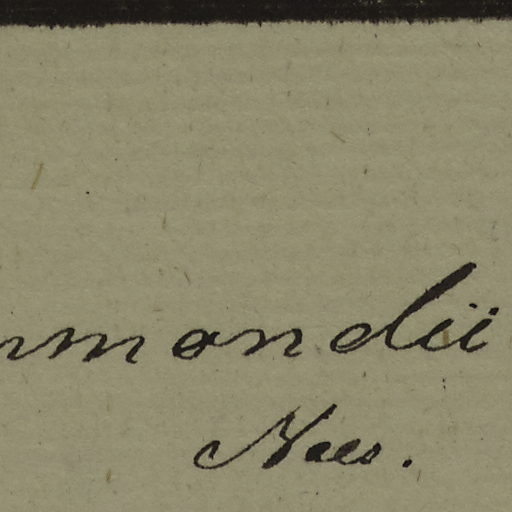 mmandii
Naes.